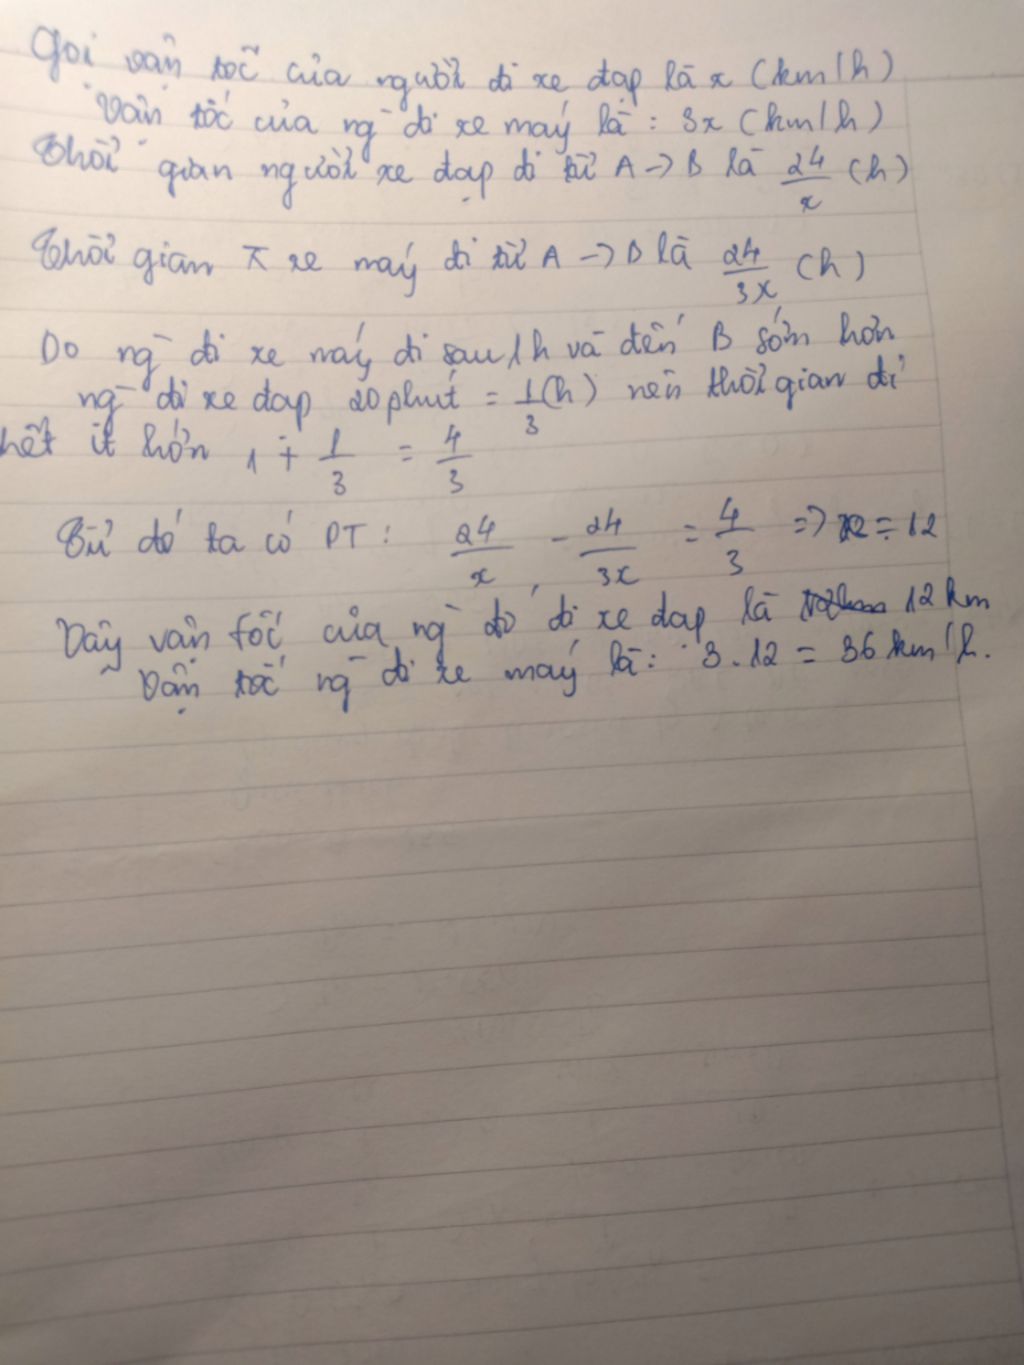 Gọi vận tốc của người đi xe đạp là x (km/h)
Vận tốc của ng đi xe máy là : 3x (km/h)
Thời gian người xe đạp đi từ A -> B là 24/x (h)
Thời gian xe máy đi từ A -> B là 24/3x (h)
Do ng đi xe máy đi sau 1h và đến B sớm hơn
ng đi xe đạp 20 phút = 1/3 (h) nên thời gian đi
hết ít hơn 1 + 1/3 = 4/3
Từ đó ta có PT : 24/x - 24/3x = 4/3 => x = 12
Vậy vận tốc của ng đi xe đạp là 12 km
Vận tốc ng đi xe máy là : 3 . 12 = 36 km/h.